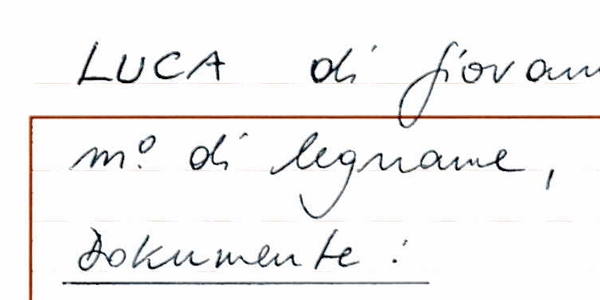 LUCA di Giovan
m.º di legname,
Dokumente :